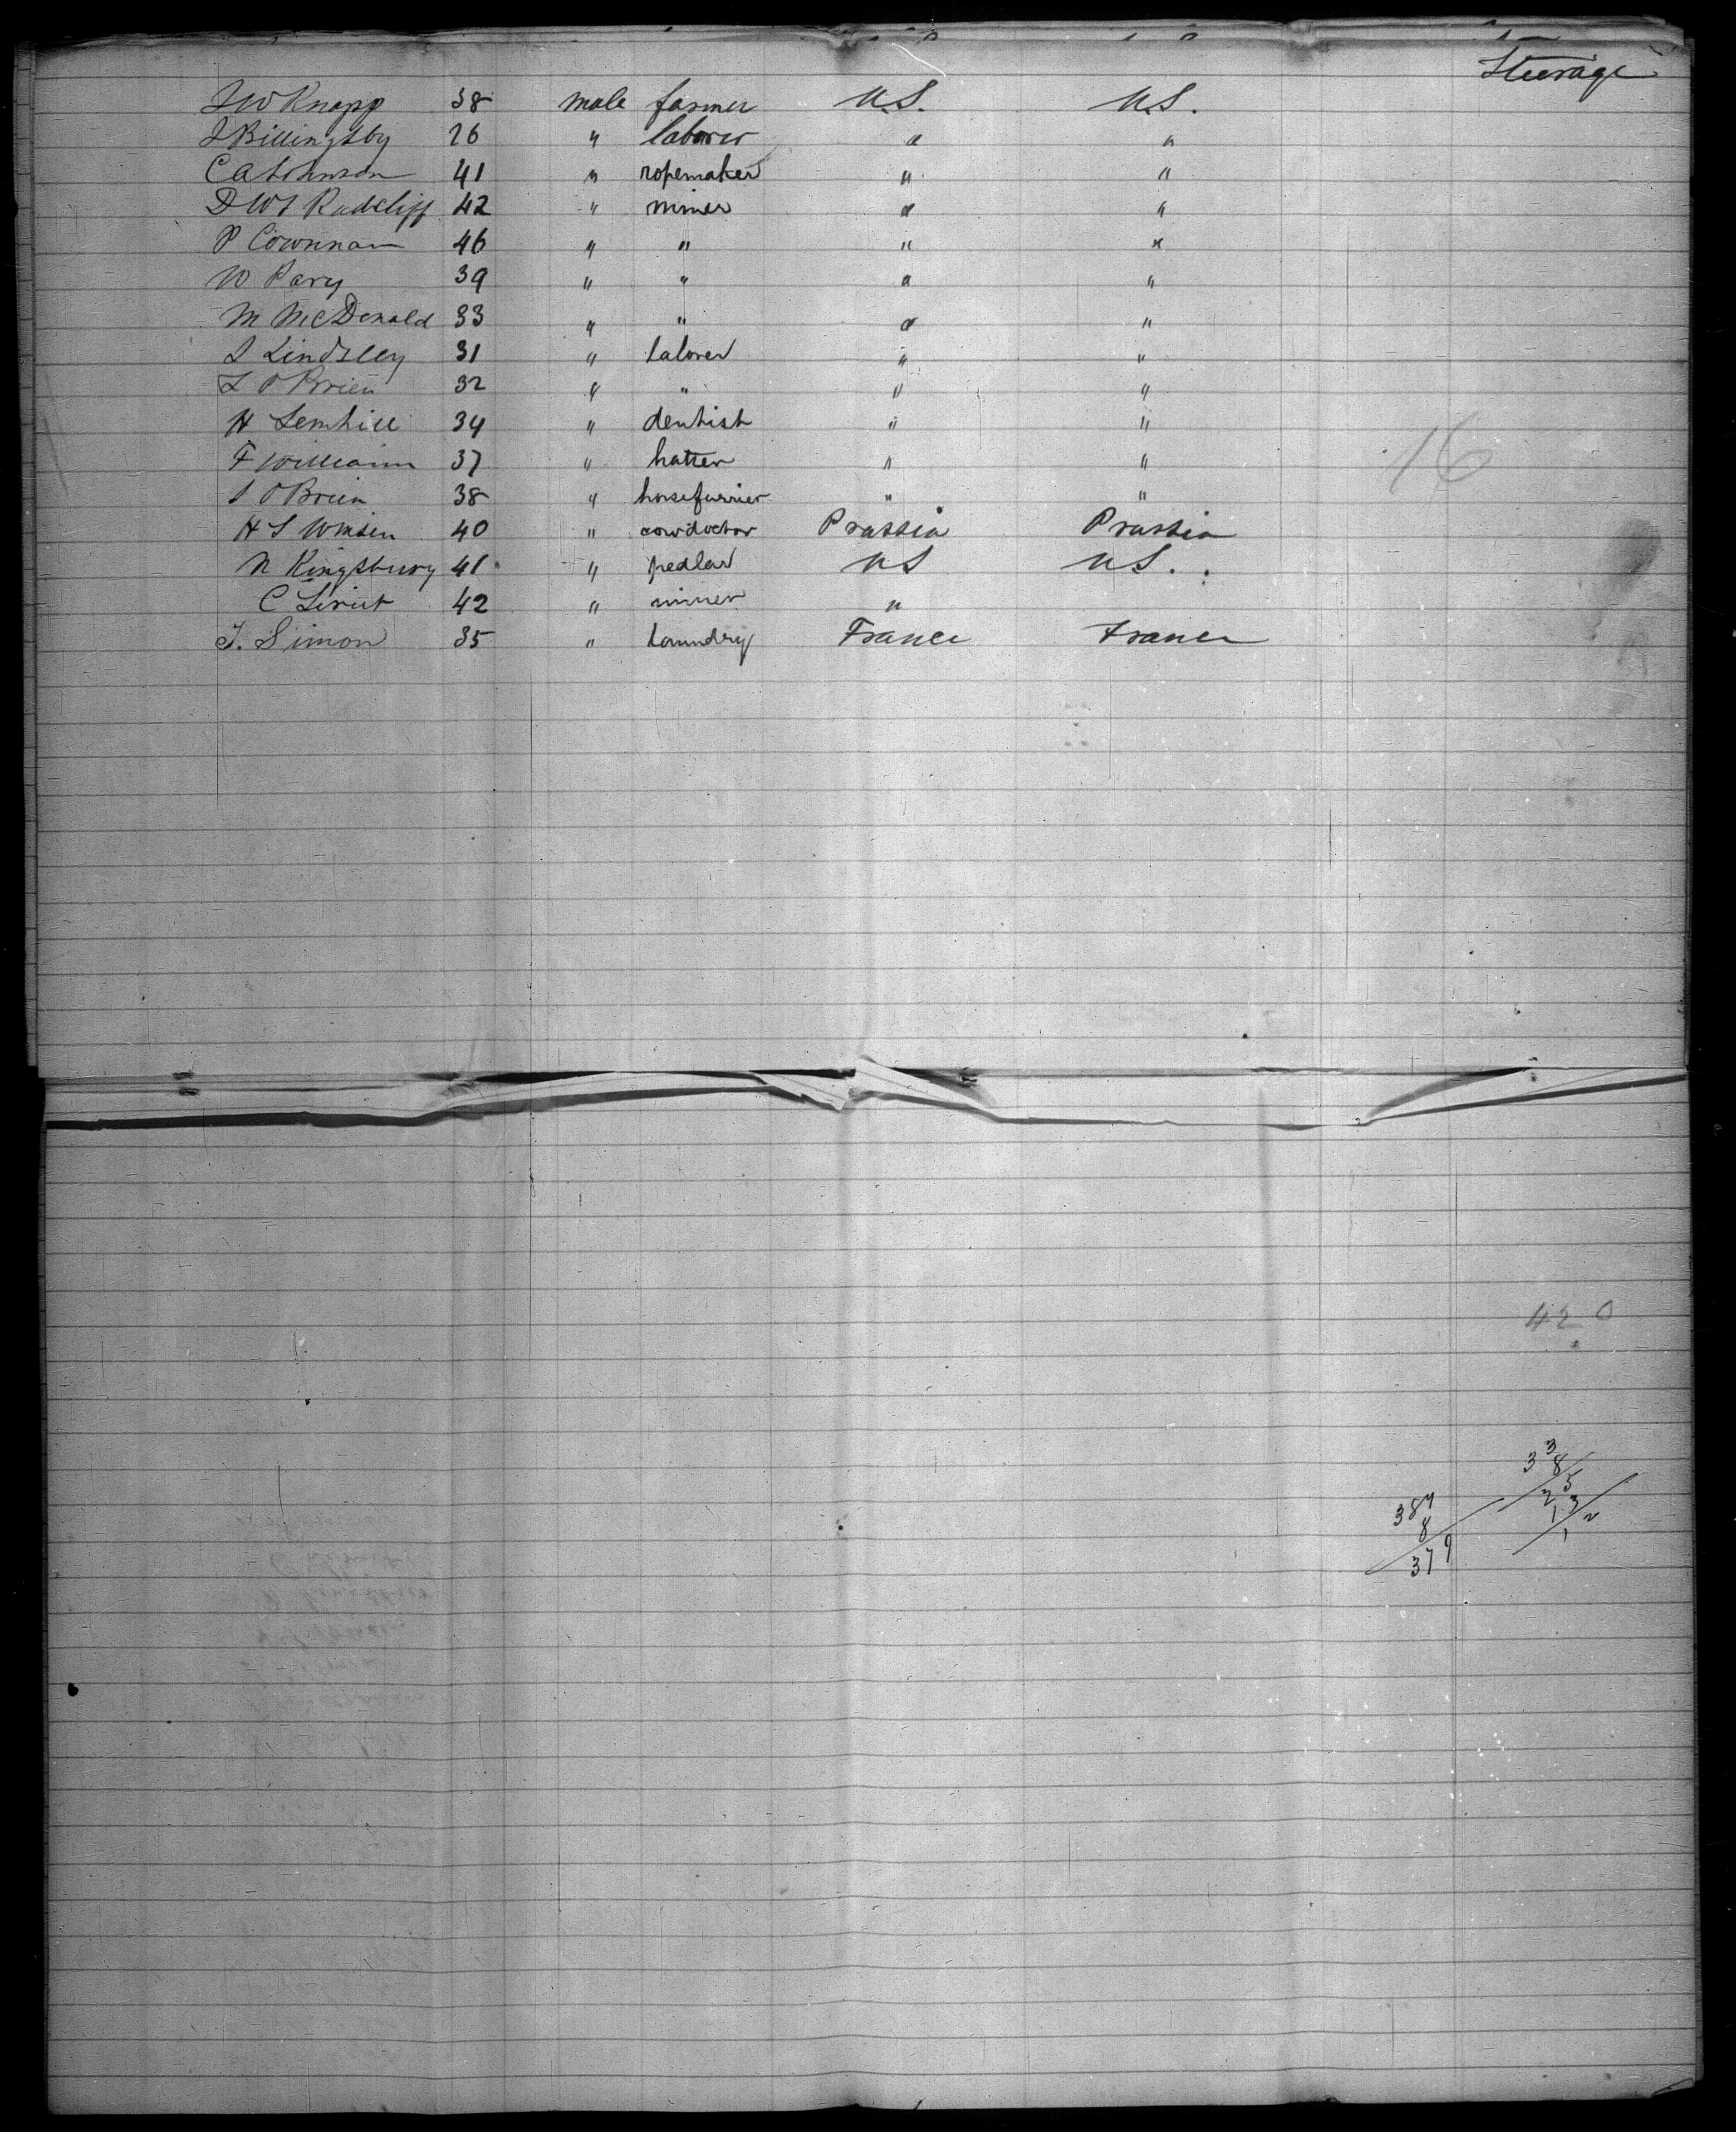 Steerage
J W Knapp 38 male farmer U.S. U.S.
J Billingsby 26 " laborer " "
C A Johnson 41 " ropemaker " "
D W S Radcliff 42 " miner " "
P 46 " " " "
W Pary 39 " " " "
M McDonald 33 " " " "
J Lindsley 31 " laborer " "
L O Brien 32 " " " "
H 34 " dentist " "
F William 37 " hatter " "
J O Brien 38 " horsefurrier " "
H S 40 " cowdoctor Prussia Prussia
N Kingsbury 41 " pedlar US US.
C 42 " miner "
J. Simon 35 " laundry France France
16
420
387
8
379